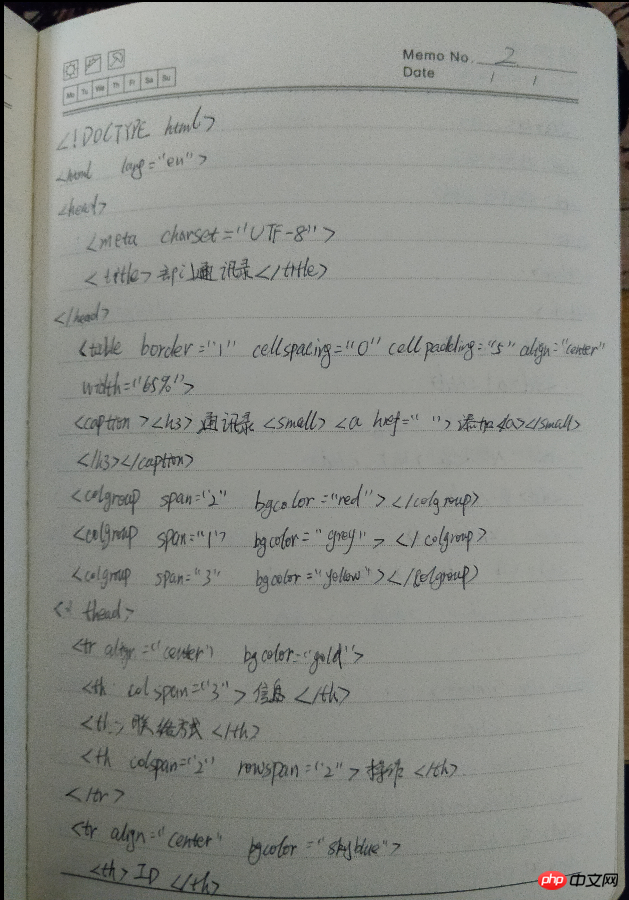 Memo No. 2
Date / /
Mo Tu We Th Fr Sa Su
<!DOCTYPE html>
<html lang="en">
<head>
<meta charset="UTF-8">
<title>部门通讯录</title>
</head>
<table border="1" cellspacing="0" cellpadding="5" align="center"
width="65%">
<caption><h3>通讯录<small><a href=" ">添加<a></small>
</h3></caption>
<colgroup span="2" bgcolor="red"></colgroup>
<colgroup span="1" bgcolor="grey"></colgroup>
<colgroup span="3" bgcolor="yellow"></colgroup>
<thead>
<tr align="center" bgcolor="gold">
<th colspan="3">信息</th>
<th>联络方式</th>
<th colspan="2" rowspan="2">操作</th>
</tr>
<tr align="center" bgcolor="skyblue">
<th>ID</th>
php中文网